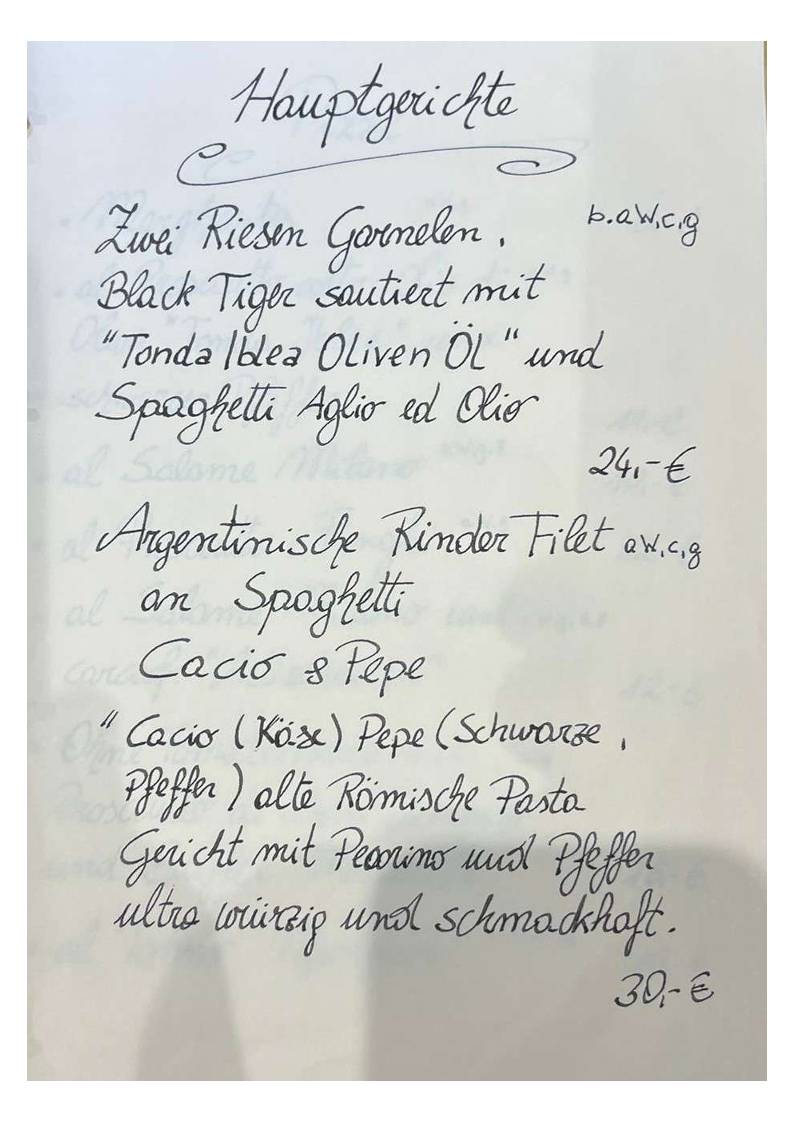 Hauptgerichte
Zwei Riesen Garnelen, b.aW,c,g
Black Tiger sautiert mit
"Tonda Iblea Oliven ÖL" und
Spaghetti Aglio ed Olio
24,-€
Argentinische Rinder Filet aW,c,g
an Spaghetti
Cacio & Pepe
"Cacio (Käse) Pepe (Schwarze,
Pfeffer) alte Römische Pasta
Gericht mit Pecorino und Pfeffer
ultra würzig und schmackhaft.
30,-€